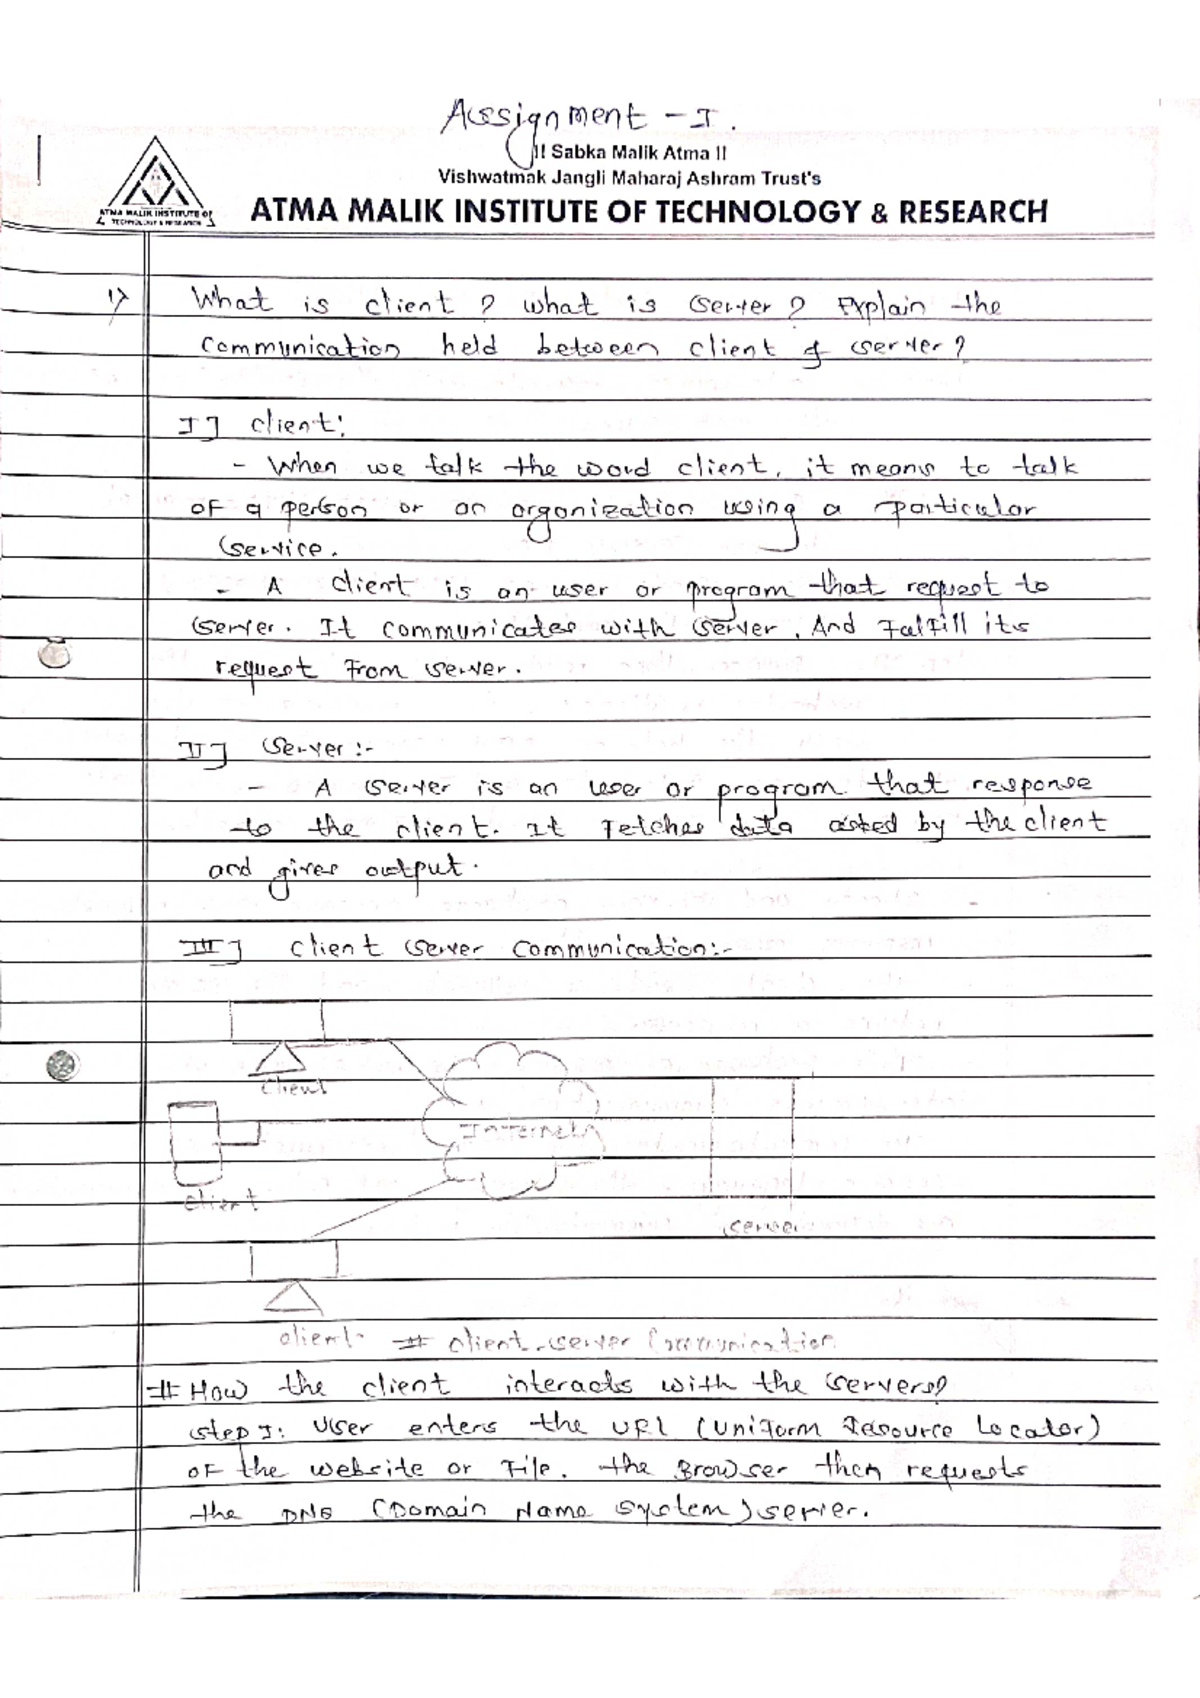 Assignment - I.
!! Sabka Malik Atma !!
Vishwatmak Jangli Maharaj Ashram Trust's
ATMA MALIK INSTITUTE OF TECHNOLOGY & RESEARCH
ATMA MALIK INSTITUTE OF
TECHNOLOGY & RESEARCH
1) What is client ? what is server ? Explain the
communication held between client & server ?
I] client:
- When we talk the word client, it means to talk
of a person or an organization using a particular
service.
- A client is an user or program that request to
server. It communicates with server. And Falfill its
request From server.
II] Server :-
- A server is an user or program that response
to the client. It Fetches data asked by the client
and gives output.
III] Client Server Communication:-
Client
Internet
client
server
client
# client-server Communication
# How the client interacts with the servers?
step I: User enters the URL (Uniform Resource Locator)
of the website or File. the Browser then requests
the DNS (Domain Name System) server.